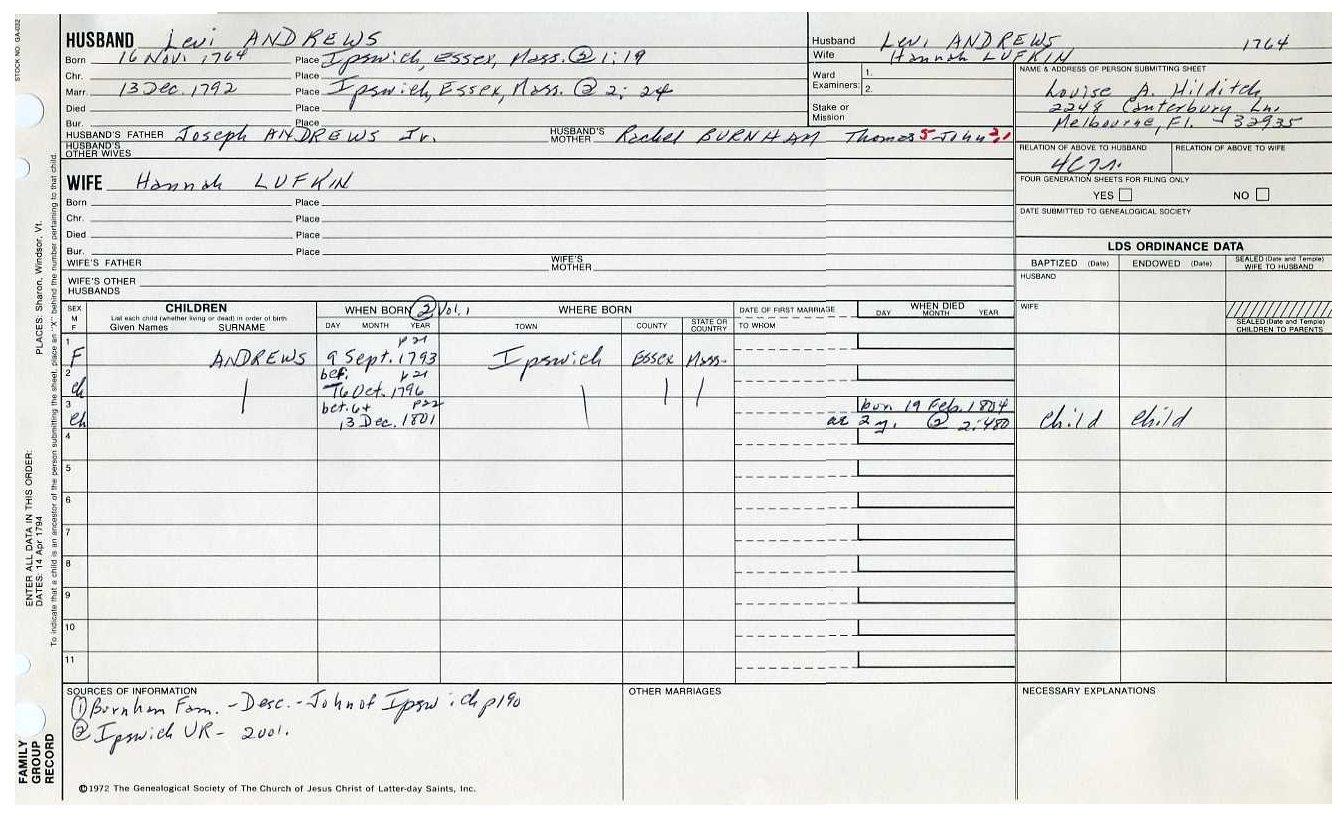 STOCK NO. GA-032
HUSBAND Levi ANDREWS
Born 16 Nov. 1764 Place Ipswich, Essex, Mass. @ 1:19
Chr. Place
Marr. 13 Dec. 1792 Place Ipswich, Essex, Mass. @ 2:24
Died Place
Bur. Place
HUSBAND'S FATHER Joseph ANDREWS Jr. HUSBAND'S MOTHER Rachel BURNHAM Thomas 5 John
HUSBAND'S OTHER WIVES
Husband Levi ANDREWS 1764
Wife Hannah LUFKIN
Ward Examiners: 1.
2.
Stake or Mission
NAME & ADDRESS OF PERSON SUBMITTING SHEET
Louise A. Hilditch
2248 Canterbury Ln.
Melbourne, Fl. 32935
RELATION OF ABOVE TO HUSBAND RELATION OF ABOVE TO WIFE
FOUR GENERATION SHEETS FOR FILING ONLY
YES NO
DATE SUBMITTED TO GENEALOGICAL SOCIETY
WIFE Hannah LUFKIN
Born Place
Chr. Place
Died Place
Bur. Place
WIFE'S FATHER WIFE'S MOTHER
WIFE'S OTHER HUSBANDS
LDS ORDINANCE DATA
BAPTIZED (Date) ENDOWED (Date) SEALED (Date and Temple) WIFE TO HUSBAND
HUSBAND
WIFE
SEALED (Date and Temple) CHILDREN TO PARENTS
SEX M F
CHILDREN
List each child (whether living or dead) in order of birth
Given Names SURNAME
WHEN BORN 2 Vol. 1
DAY MONTH YEAR
WHERE BORN
TOWN COUNTY STATE OR COUNTRY
DATE OF FIRST MARRIAGE
TO WHOM
WHEN DIED
DAY MONTH YEAR
1 p21
F ANDREWS 9 Sept. 1793 Ipswich Essex Mass.
2 bef. p21
ch 16 Oct. 1796
3 bet. 6+ p22 bur. 19 Feb. 1804
ch 13 Dec. 1801 ae 2 y. @ 2:480 child child
4
5
6
7
8
9
10
11
SOURCES OF INFORMATION
① Burnham Fam. - Desc. - John of Ipswich p190
② Ipswich VR - 2 vol.
OTHER MARRIAGES
NECESSARY EXPLANATIONS
©1972 The Genealogical Society of The Church of Jesus Christ of Latter-day Saints, Inc.
FAMILY GROUP RECORD
ENTER ALL DATA IN THIS ORDER:
DATES: 14 Apr 1794
PLACES: Sharon, Windsor, Vt.
To indicate that a child is an ancestor of the person submitting the sheet, place an "X" behind the number pertaining to that child.